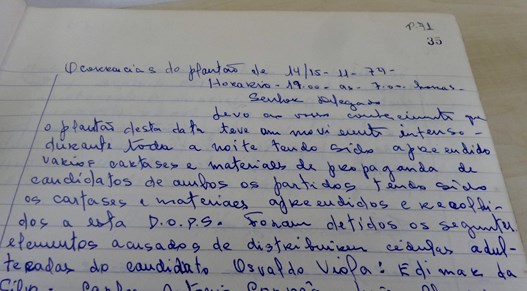 P.71
35
Ocorrencias do plantão de 14/15-11-74-
Horario - 19.00 - as - 7.00. horas-
Senhor Delegado
Levo ao vosso conhecimento que
o plantão desta data teve um movimento intenso-
durante toda a noite tendo sido apreendido
varios cartases e materiais de propaganda de
candidatos de ambos os partidos tendo sido
os cartases e materiaes apreendidos e recolhi-
dos a esta D.O.P.S. Foram detidos os seguintes
elementos acusados de distribuirem cedulas adul-
teradas do candidato Osvaldo Viola: Edimar da
Silva - Carlos Antonio